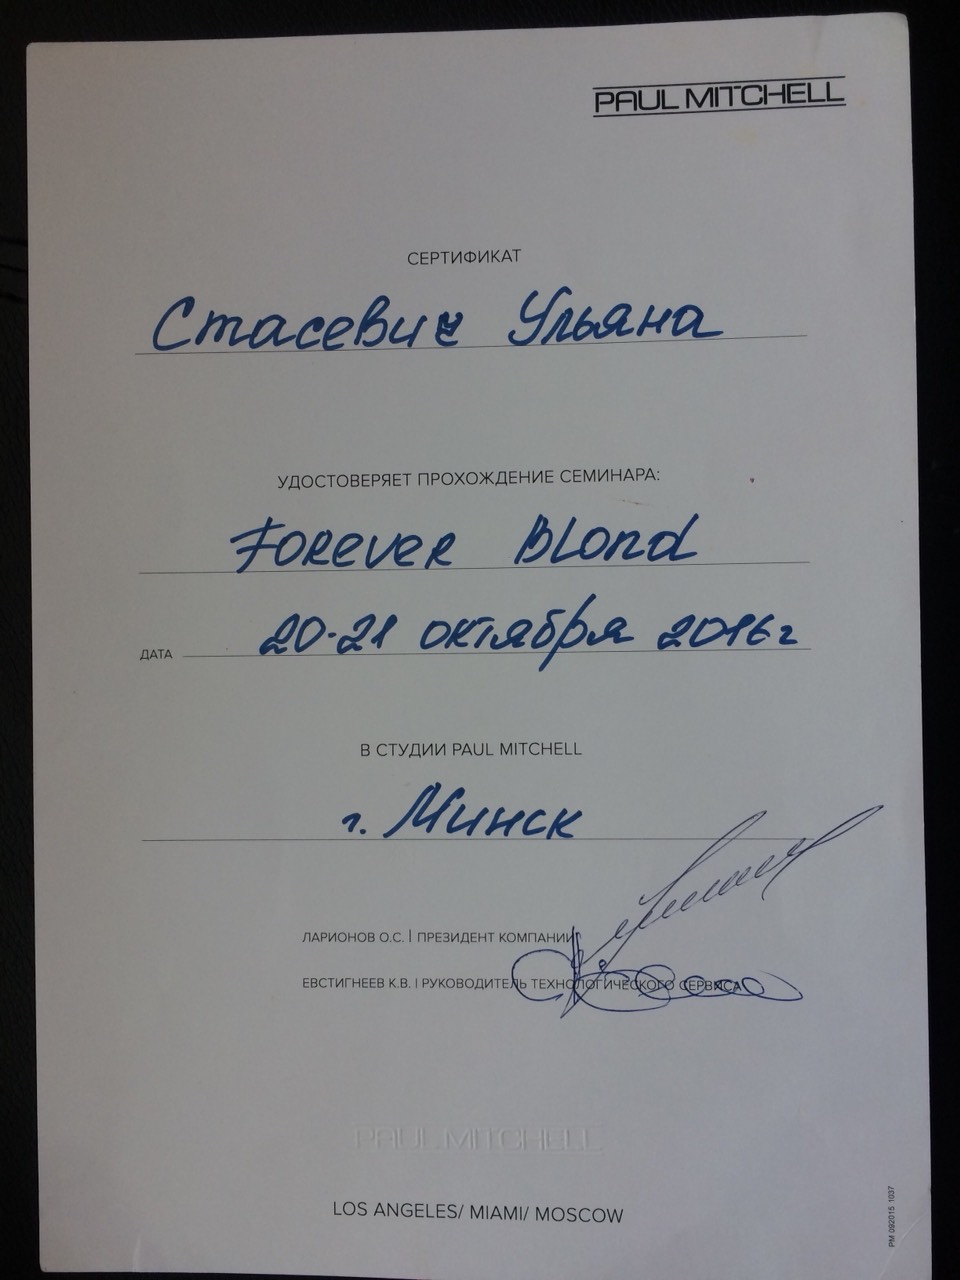 PAUL MITCHELL
СЕРТИФИКАТ
Стасевич Ульяна
УДОСТОВЕРЯЕТ ПРОХОЖДЕНИЕ СЕМИНАРА:
Forever Blond
ДАТА 20-21 октября 2016 г
В СТУДИИ PAUL MITCHELL
г. Минск
ЛАРИОНОВ О.С. | ПРЕЗИДЕНТ КОМПАНИИ
ЕВСТИГНЕЕВ К.В. | РУКОВОДИТЕЛЬ ТЕХНОЛОГИЧЕСКОГО СЕРВИСА
PAUL MITCHELL
LOS ANGELES/ MIAMI/ MOSCOW
PM 092015 1037